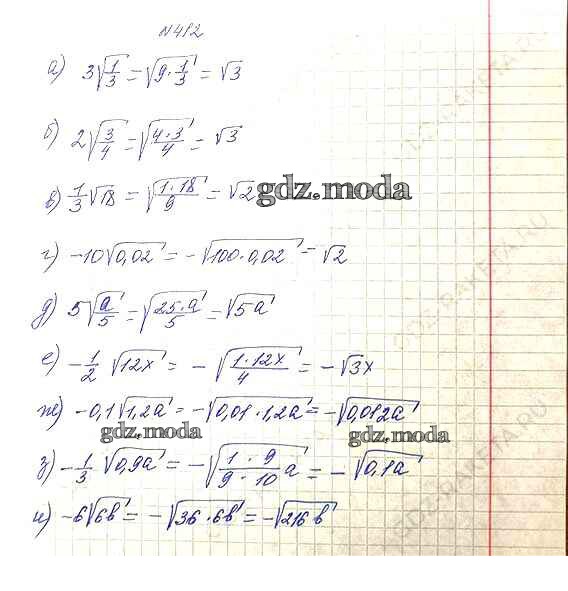 №412
а) 3√(1/3) = √(9·1/3) = √3
б) 2√(3/4) = √(4·3/4) = √3
в) 1/3√18 = √(1·18/9) = √2
gdz.moda
г) -10√0,02 = -√(100·0,02) = √2
д) 5√(a/5) = √(25·a/5) = √5a
е) -1/2 √12x = -√(1·12x/4) = -√3x
ж) -0,1√1,2a = -√(0,01·1,2a) = -√0,012a
gdz.moda gdz.moda
з) -1/3 √0,9a = -√(1·9/9·10 a) = -√0,1a
и) -6√6b = -√(36·6b) = -√216b
GDZ-RAKETA.RU
GDZ-RAKETA.RU
GDZ-RAKETA.RU